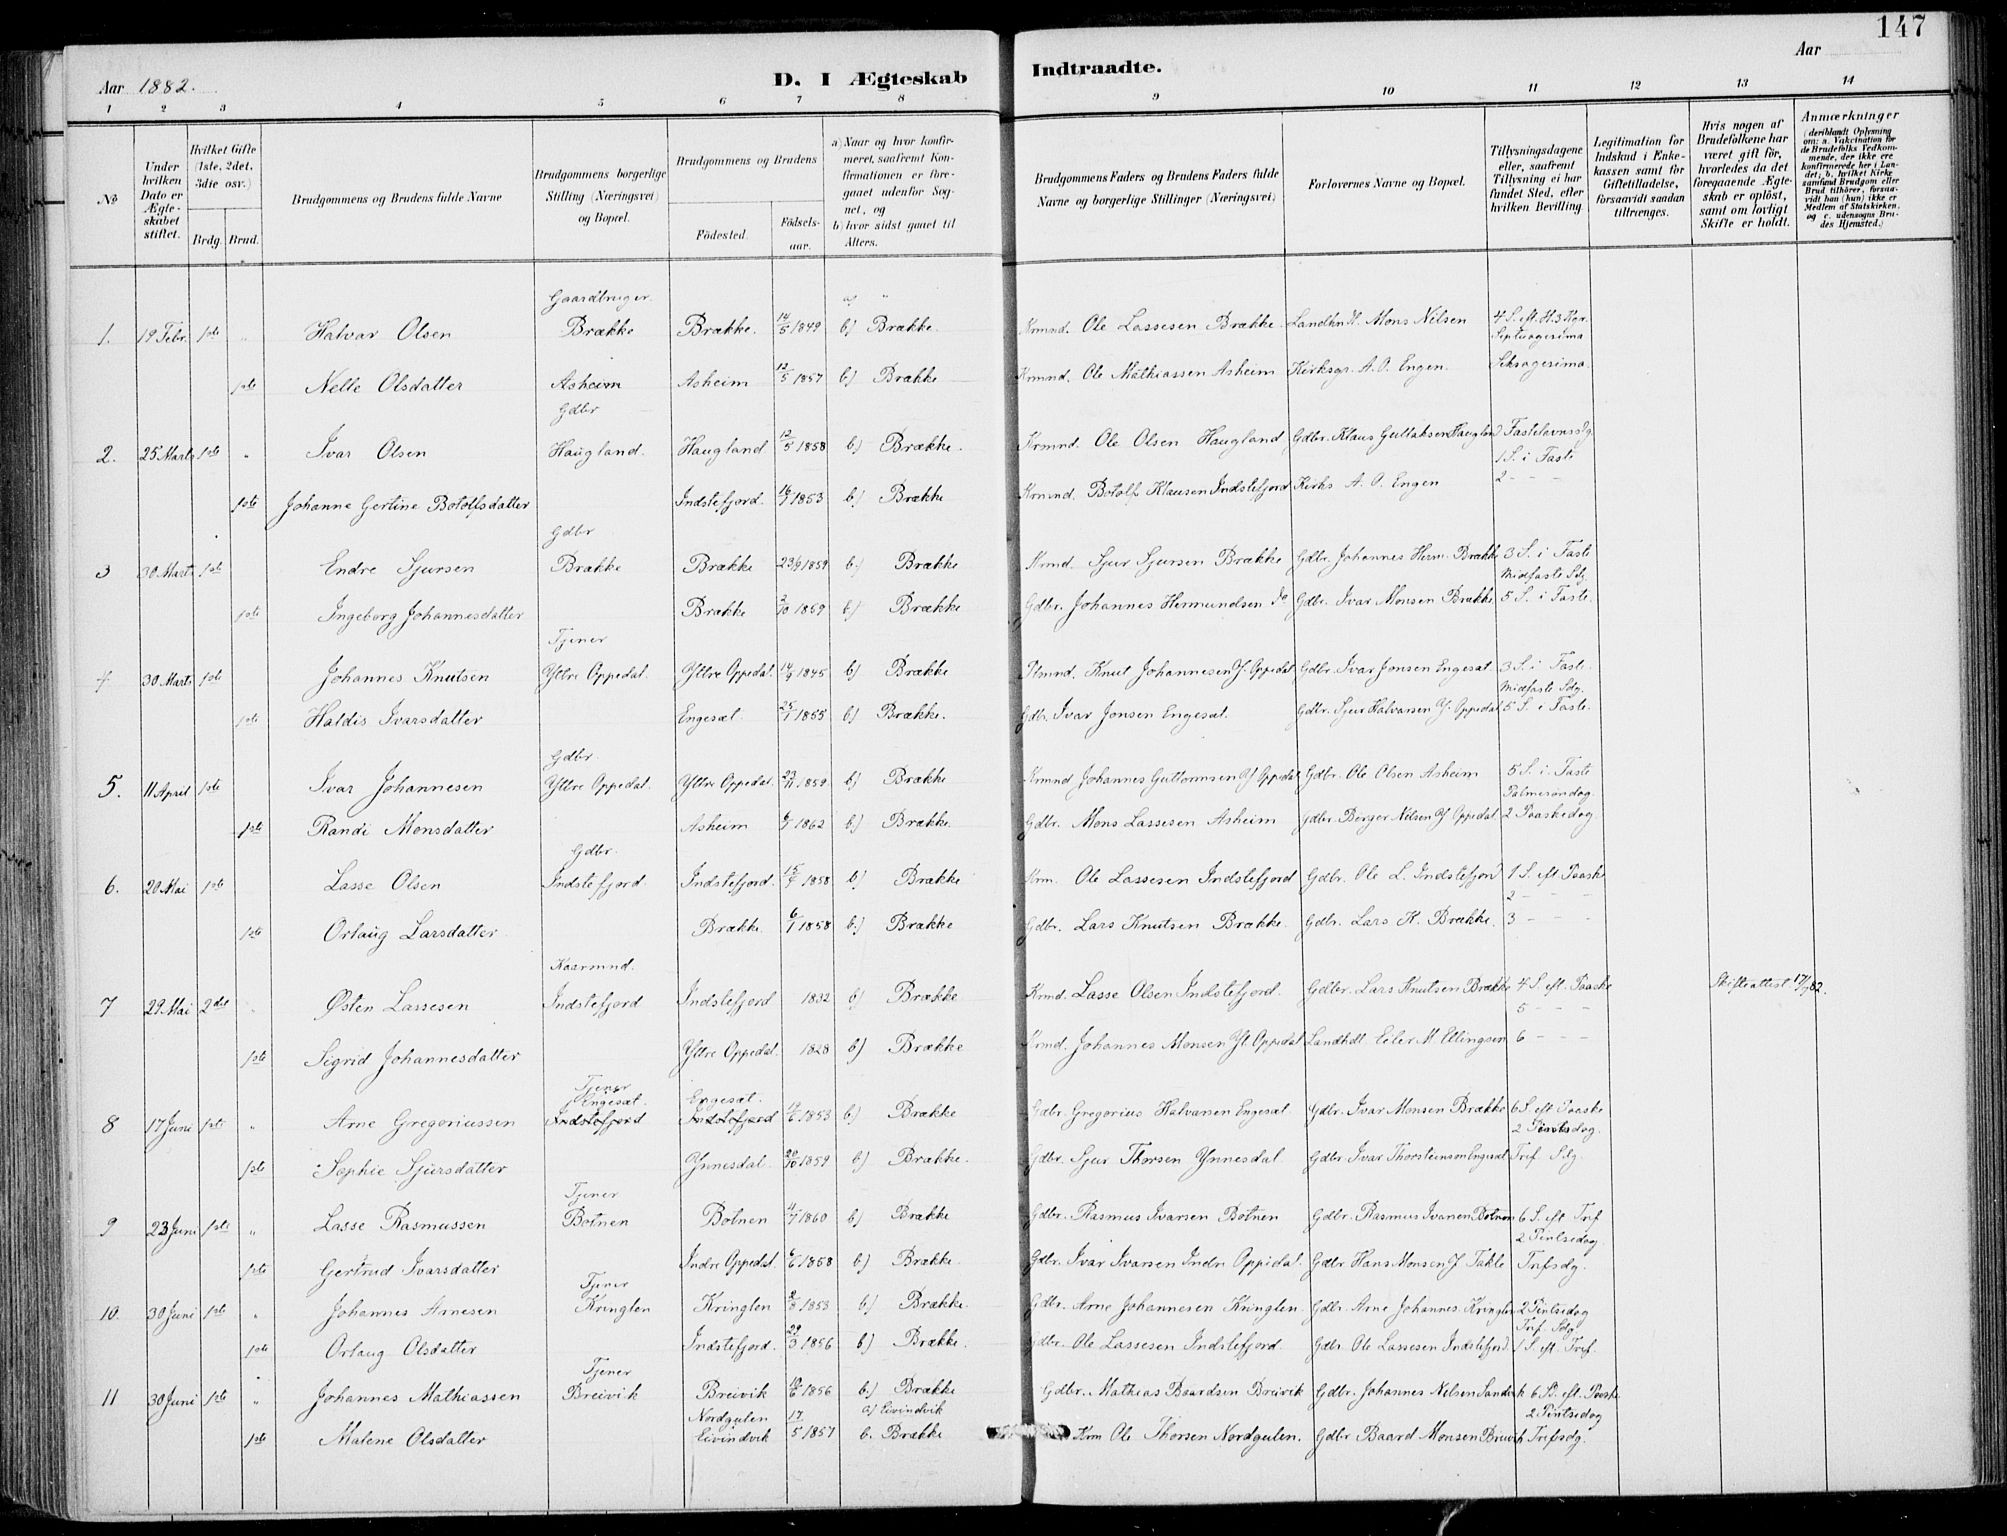 147
Aar 1882.
D. I Ægteskab Indtraadte.
Aar
1 2 3 4 5 6 7 8 9 10 11 12 13 14
No
Under hvilken Dato er Ægteskabet stiftet.
Hvilket Gifte (1ste, 2det, 3die osv.)
Brdg. Brud.
Brudgommens og Brudens fulde Navne
Brudgommens borgerlige Stilling (Næringsvei) og Bopæl.
Brudgommens og Brudens
Fødested. Fødselsaar.
a) Naar og hvor konfirmeret, saafremt Konfirmationen er foregaaet udenfor Sognet, og
b) hvor sidst gaaet til Alters.
Brudgommens Faders og Brudens Faders fulde Navne og borgerlige Stillinger (Næringsvei)
Forlovernes Navne og Bopæl.
Tillysningsdagene eller, saafremt Tillysning ei har fundet Sted, efter hvilken Bevilling
Legitimation for Indskud i Enkekassen samt for Giftetilladelse, forsaavidt saadan tiltrænges.
Hvis nogen af Brudefolkene har været gift før, hvorledes da det foregaaende Ægteskab er opløst, samt om lovligt Skifte er holdt.
Anmærkninger
(deriblandt Oplysning om: a. Vakcination for de Brudefolks Vedkommende, der ikke ere konfirmerede her i Landet; b. hvilket Kirkesamfund Brudgom eller Brud tilhører, forsaavidt han (hun) ikke er Medlem af Statskirken, og c. udensogns Brudes Hjemsted.)
Gaardbruger a) "
1. 19 Febr. 1ste " Halvar Olsen Brække Brække. 14/5 1849 b) Brække. Krmnd. Ole Lassesen Brække Landhn H. Mons Nilsen 4 S. eft. H. 3 Kgr.
Septuagesima
1ste Nelle Olsdatter Asheim Asheim 12/5 1857 b) Brække Krmnd. Ole Mathiassen Asheim Kirksgr. A. O. Engen. Seksagesima.
Gdbr
2. 25 Marts 1ste " Ivar Olsen Haugland. Haugland 12/5 1858 b) Brække. Krmnd. Ole Olsen Haugland Gdbr. Klaus Guttaksen Haugland Fastelavnssdg.
1 S. i Faste
1ste Johanne Gertine Botolfsdatter Indstefjord. 16/7 1853 b) Brække Krmnd. Botolf Klausen Indstefjord Kirks A. O. Engen 2 - - -
Gdbr
3 30 Marts 1ste Endre Sjursen Brække Brække 23/9 1859 b) Brække Krmnd. Sjur Sjursen Brække Gdbr. Johannes Herm. Brække 3 S. i Faste
Midfaste Sdg.
1ste Ingeborg Johannesdatter Brække 2/10 1859 b) Brække Gdbr. Johannes Hermundsen do Gdbr. Ivar Monsen Brække 5 S. i Faste.
Tjener
4 30 Marts 1ste Johannes Knutsen Yttre Oppedal. Yttre Oppedal. 14/9 1845 b) Brække Knut Johannesen Y. Oppedal Gdbr. Ivar Jonsen Engesæt 3 S. i Faste.
Midfaste Sdg.
1ste Haldis Ivarsdatter Engesæt. 25/1 1855 b) Brække. Gdbr. Ivar Jonsen Engesæt. Gdbr. Sjur Halvarsen Y. Oppedal 5 S. i Faste.
Gdbr
5. 11 April 1ste Ivar Johannesen Yttre Oppedal. Yttre Oppedal. 23/11 1859. b) Brække Krmnd Johannes Guttormsen Y Oppedal Gdbr. Ole Olsen Asheim 5 S. i. Faste
Palmesøndag.
1ste Randi Monsdatter Asheim 1862 b) Brække. Gdbr. Mons Lassesen Asheim Gdbr. Børger Nilsen Y Oppedal 2 Paaskedag.
Gdbr.
6. 20 Mai 1ste Lasse Olsen Indstefjord. Indstefjord. 15/7 1858 b) Brække Krm. Ole Lassesen Indstefjord Gdbr. Ole L. Indstefjord 1 S. eft Paaske
2 - - -
1ste Orlaug Larsdatter Brække. 6/1 1858 b.) Brække Gdbr. Lars Knutsen Brække. Gdbr. Lars K. Brække. 3 - - -
Kaarmnd.
7 29 Mai 2det " Østen Lassesen Indstefjord Indstefjord 1832 b) Brække Krmd. Lasse Olsen Indstefjord. Gdbr. Lars Knutsen Brække 4 S. eft. Paaske Skifteattest 82.
5 - - -
1ste Sigrid Johannesdatter Yttre Oppedal. 1828 b) Brække Krmd. Johannes Monsen Yt. Oppedal Landhdl. Eiler M. Ellingsen 6 - - -
Tjener
Engesæt. Engesæt.
8 17 Juni 1ste " Arne Gregoriussen Indstefjord Indstefjord 1853 b) Brække Gdbr. Gregorius Halvarsen Engesæt. Gdbr. Ivar Monsen Brække 6 S. eft Paaske
2 Pintsdag.
1ste Sophie Sjursdatter Ynnesdal. 20/10 1859 b) Brække. Gdbr. Sjur Thorsen Ynnesdal Gdbr. Ivar Thorsteinson Engesæt Trif. Sdg.
Tjener
9 23 Juni 1ste " Lasse Rasmussen Botnen Botnen 4/7 1860 b) Brække Gdbr. Rasmus Ivarsen Botnen Gdbr. Rasmus Ivarsen Botnen 6 S. eft Trif
2 Pintsedag
1ste Gertrud Ivarsdatter Indre Oppedal 1858 b) Brække. Gdbr. Ivar Ivarsen Indre Oppedal. Gdbr Hans Monsen Y Takle Trifsdg.
Tjener
10. 30 Juni 1ste " Johannes Arnesen Kringlen Kringlen 2/8 1853 b) Brække. Gdbr. Arne Johannesen Kringlen. Gdbr. Arne Johannes. Kringlen 2 Pintsedag
Trif. Sdg
1ste Orlaug Olsdatter Indstefjord. 29/3 1856 b) Brække. Gdbr. Ole Lassesen Indstefjord. Gdbr. Ole Lassesen Indstefjord. 1 S. eft. Trif.
Tjener
11 30 Juni 1ste " Johannes Mathiassen Breivik Breivik 10/6 1856 b.) Brække Gdbr. Mathias Baardsen Breivik Gdbr. Johannes Nelsen Sandvik 6 S. eft. Paaske
Nordgulen a) Eivindvik 2 Pintsedag
1ste Malene Olsdatter Eivindvik 17/5 1857 b. Brække Krm Ole Thorsen Nordgulen. Gdbr Baard Monsen Breivik Trifsdg.